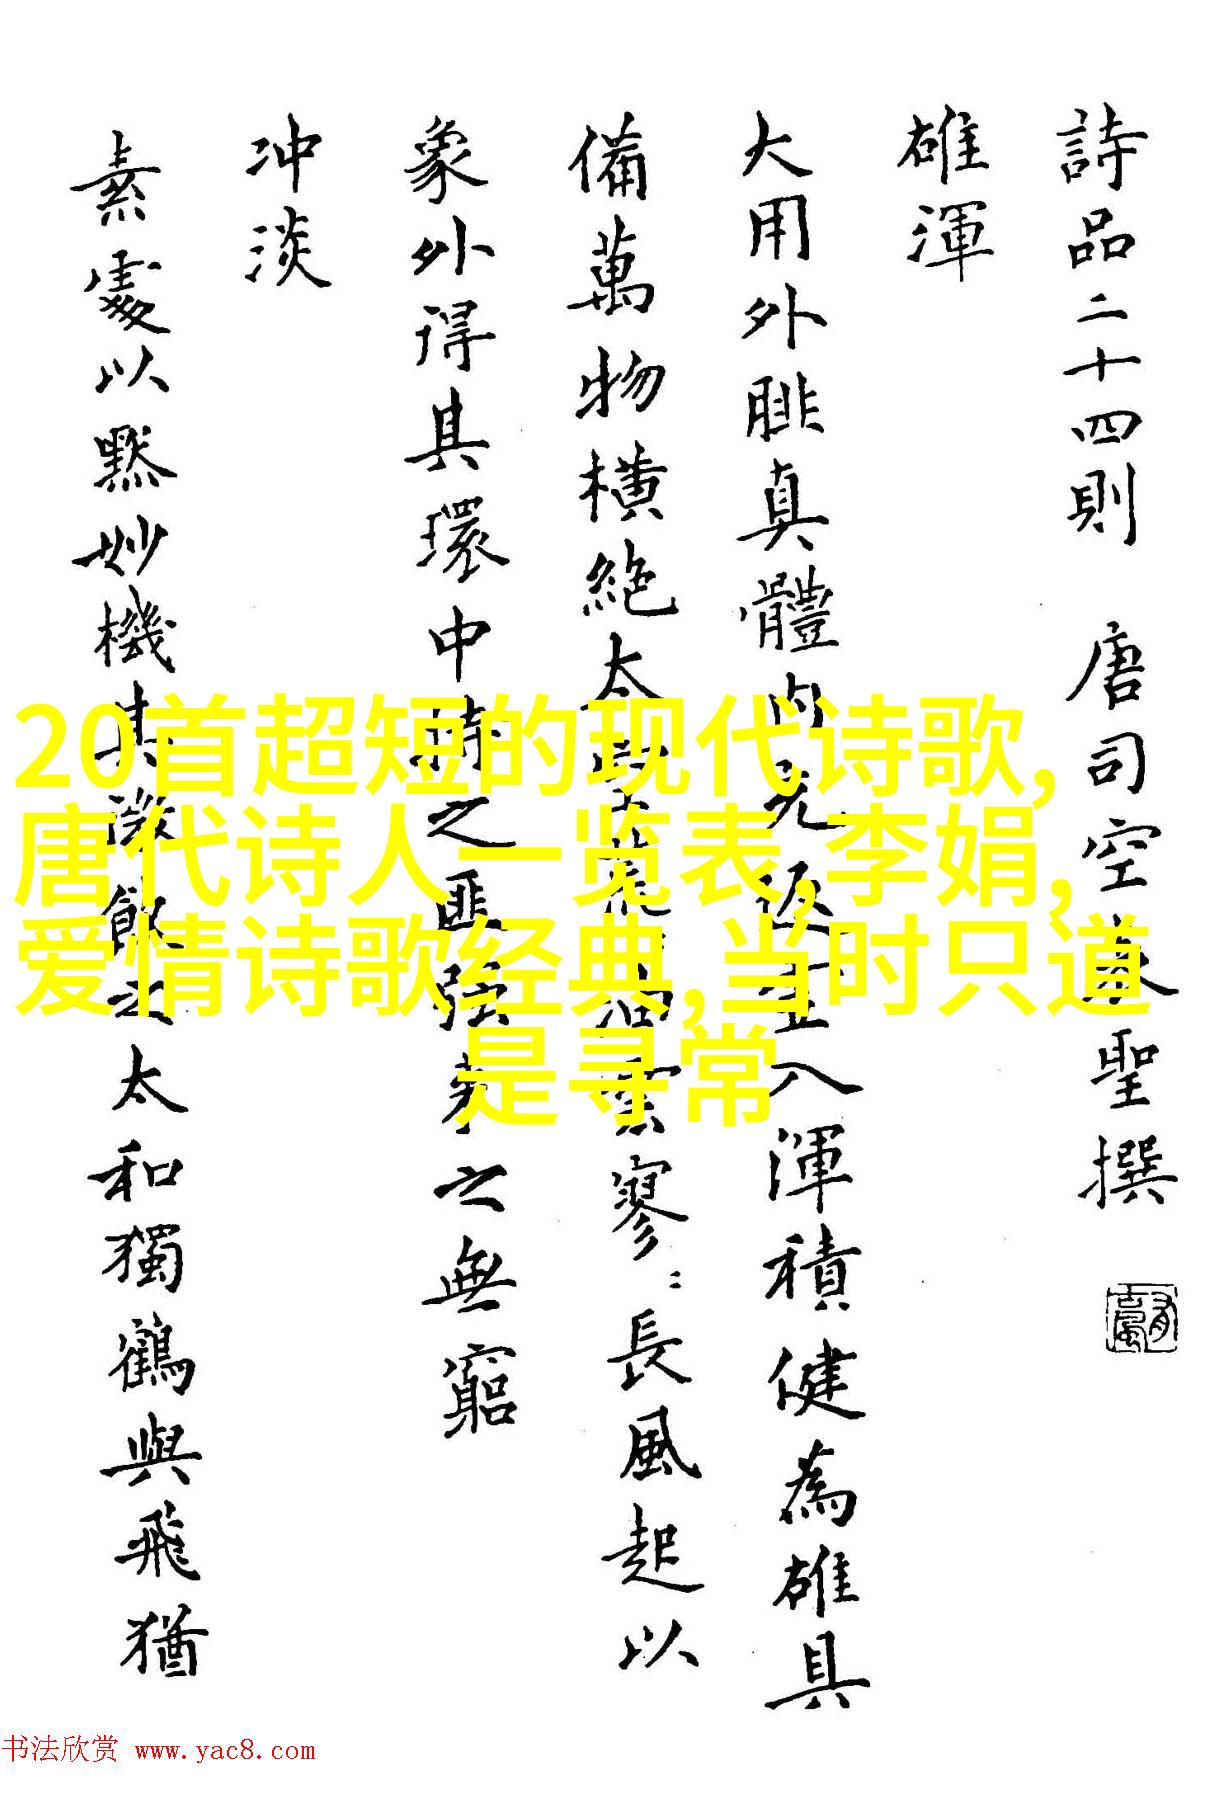 詩品二十四則 唐司空表聖撰
雄渾
大用外腓真體内充返虛入渾積健為雄具
備萬物橫絕太空荒〻油雲寥〻長風起以
象外得其環中持之匪强来之無窮
冲淡
素處以黙妙機其微飲之太和獨鶴與飛猶
20首超短的现代诗歌,
唐代诗人一览表,李娟,
爱情诗歌经典,当时只道
是寻常
书法欣赏 www.yac8.com